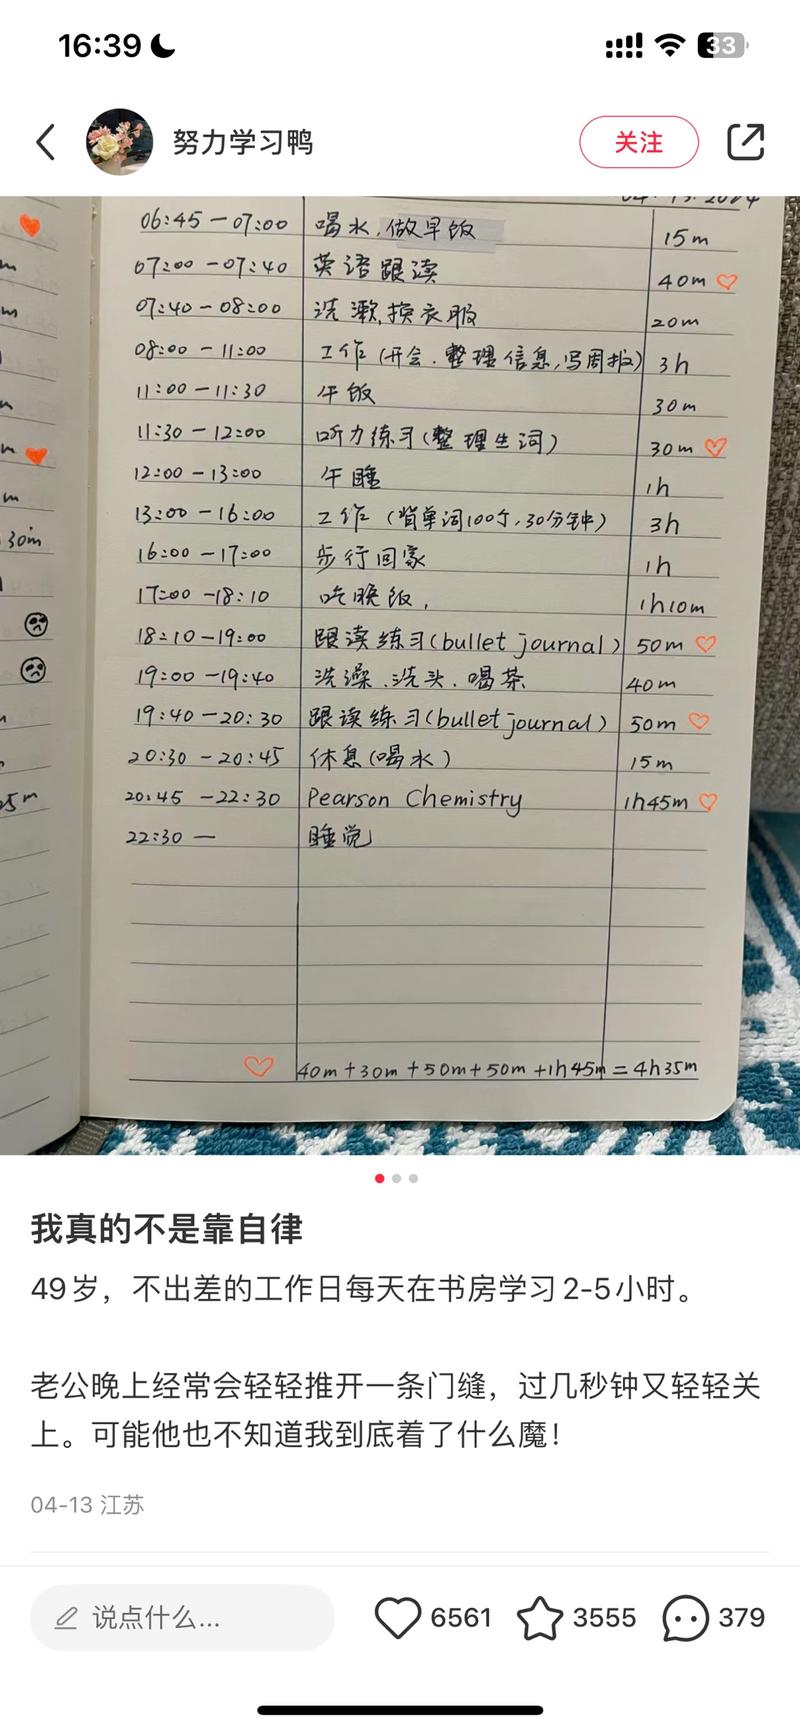 16:39
33
努力学习鸭
关注
06:45 — 07:00 喝水,做早饭 15m
07:00 — 07:40 英语跟读 40m
07:40 — 08:00 洗漱,换衣服 20m
08:00 — 11:00 工作(开会.整理信息,写周报) 3h
11:00 — 11:30 午饭 30m
11:30 — 12:00 听力练习(整理生词) 30m
12:00 — 13:00 午睡 1h
13:00 — 16:00 工作(背单词100个,30分钟) 3h
16:00 — 17:00 步行回家 1h
17:00 — 18:10 吃晚饭, 1h10m
18:10 — 19:00 跟读练习(bullet journal) 50m
19:00 — 19:40 洗澡.洗头.喝茶 40m
19:40 — 20:30 跟读练习(bullet journal) 50m
20:30 — 20:45 休息(喝水) 15m
20:45 — 22:30 Pearson Chemistry 1h45m
22:30 — 睡觉
40m+30m+50m+50m+1h45m=4h35m
30m
我真的不是靠自律
49岁，不出差的工作日每天在书房学习2-5小时。
老公晚上经常会轻轻推开一条门缝，过几秒钟又轻轻关
上。可能他也不知道我到底着了什么魔！
04-13 江苏
说点什么...
6561
3555
379